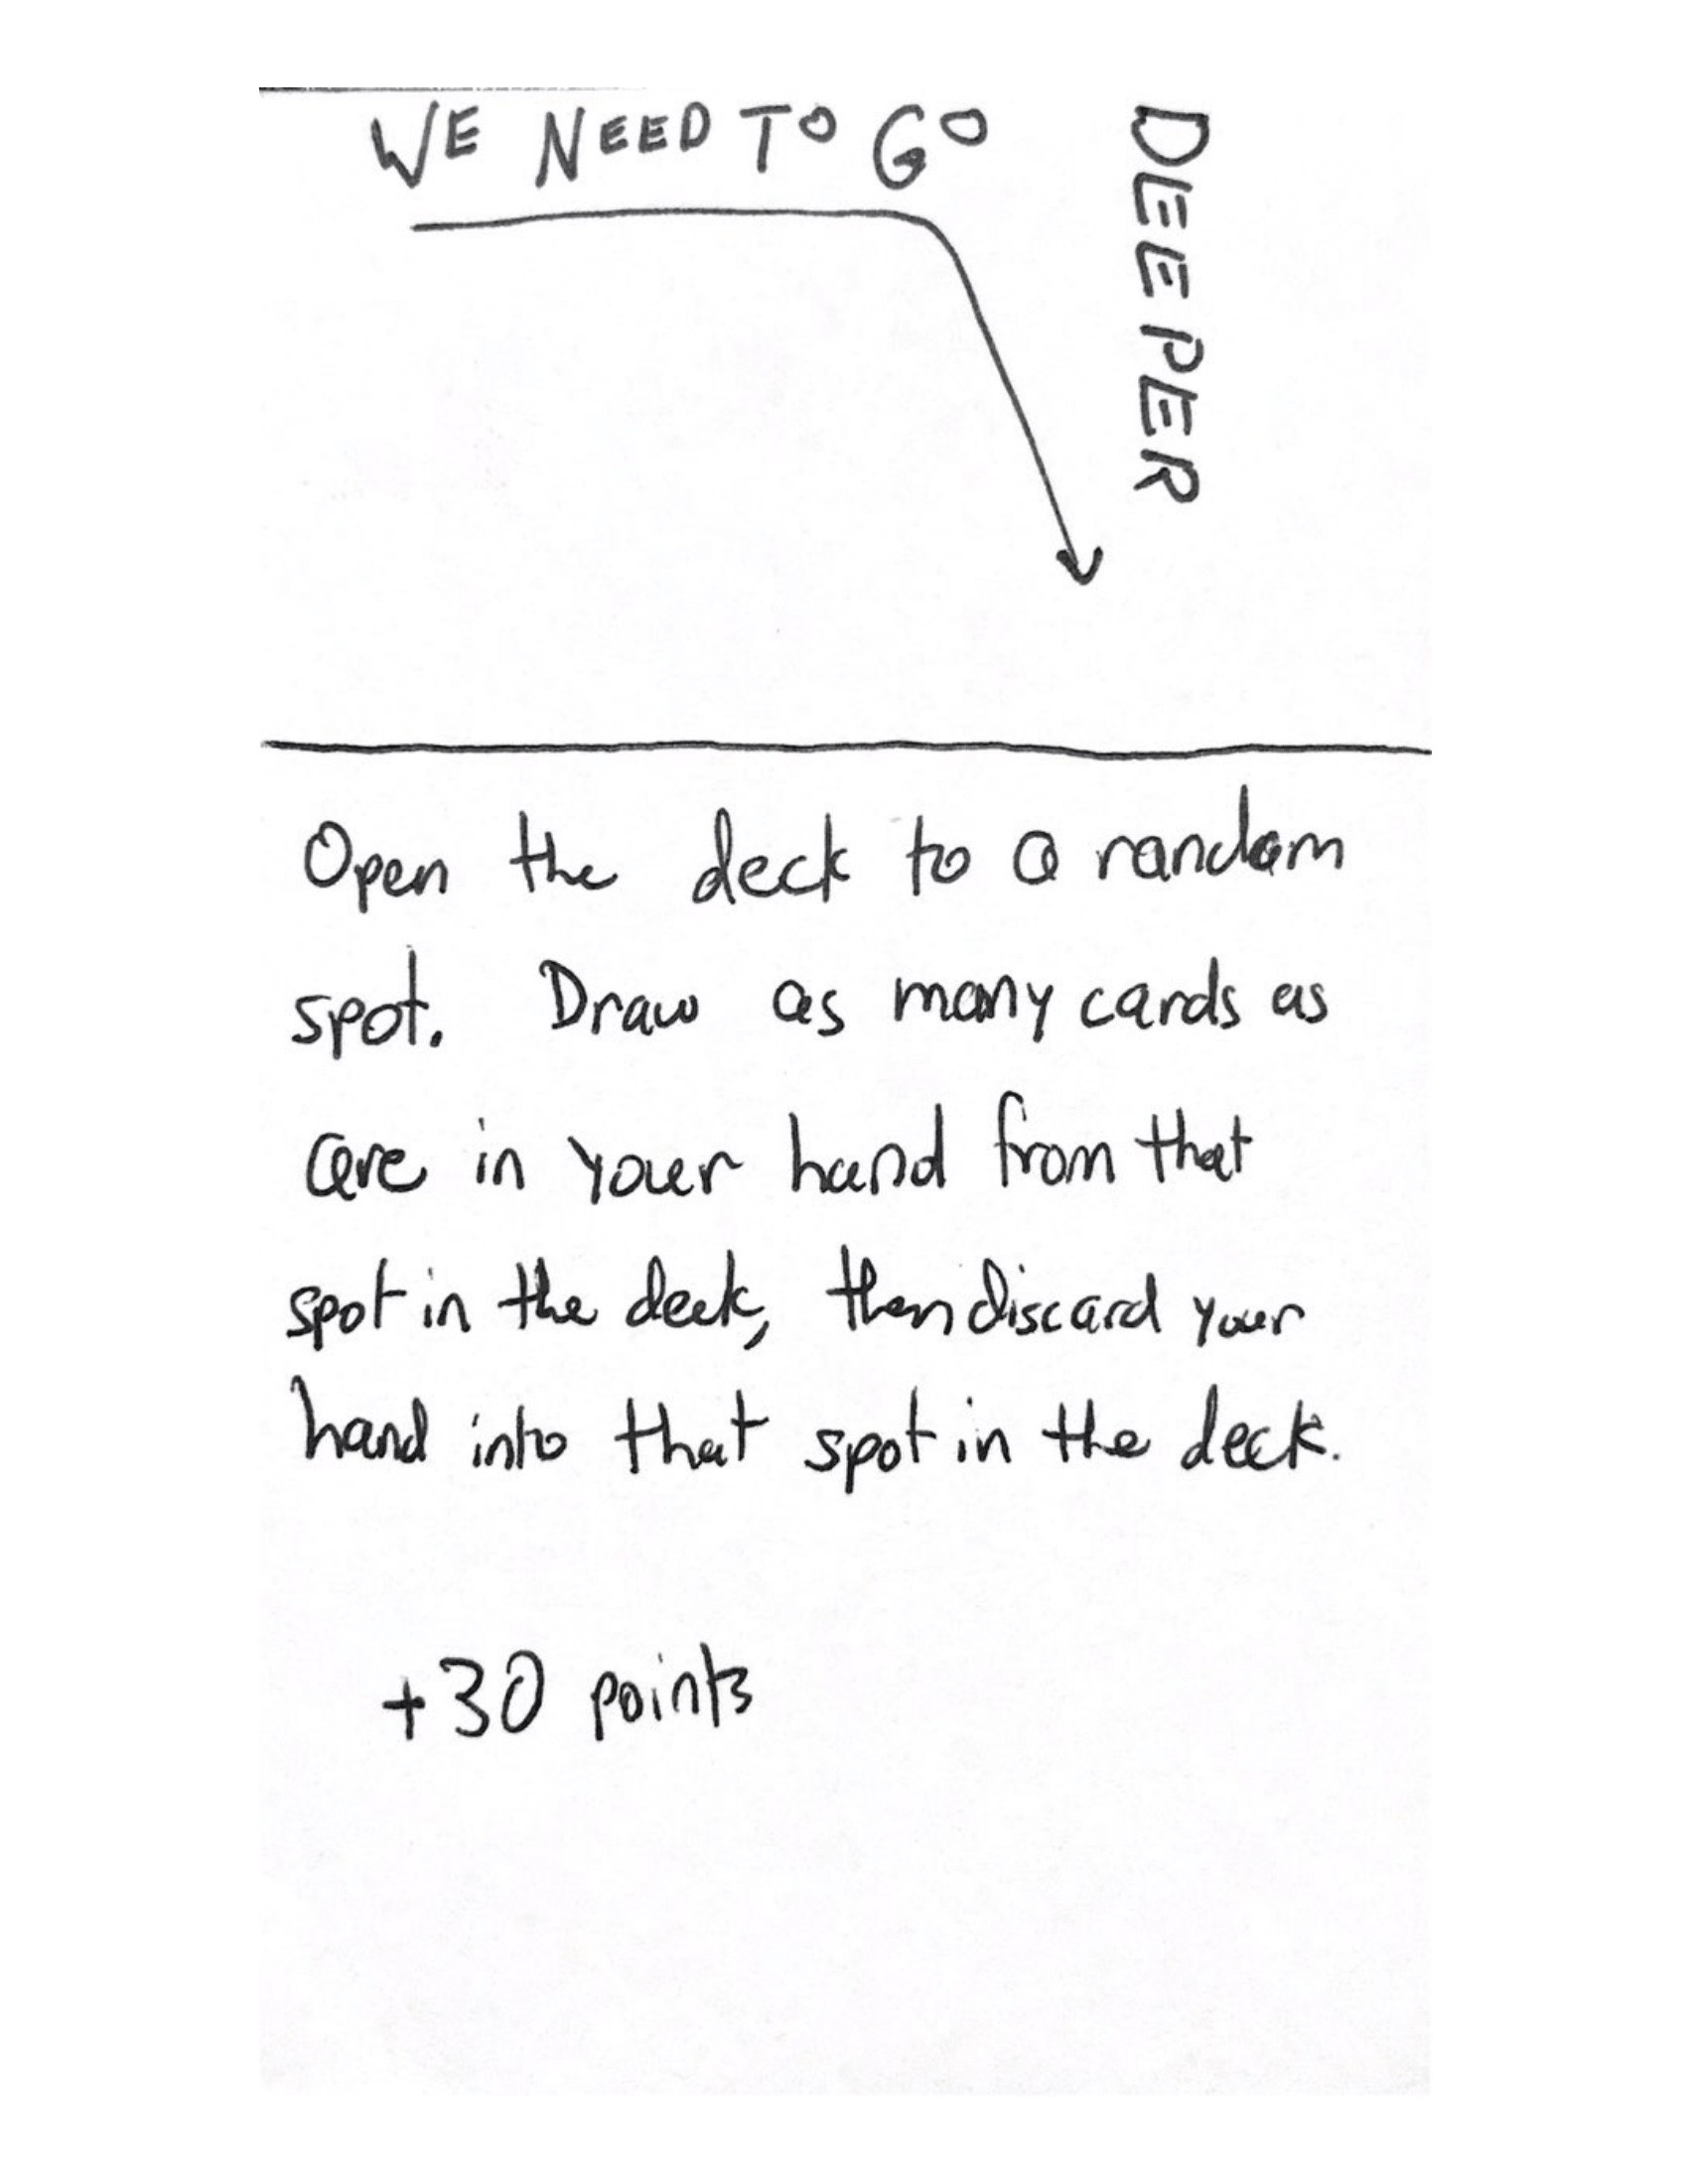 WE NEED TO GO
DEEPER
Open the deck to a random
spot. Draw as many cards as
are in your hand from that
spot in the deck, then discard your
hand into that spot in the deck.
+30 points